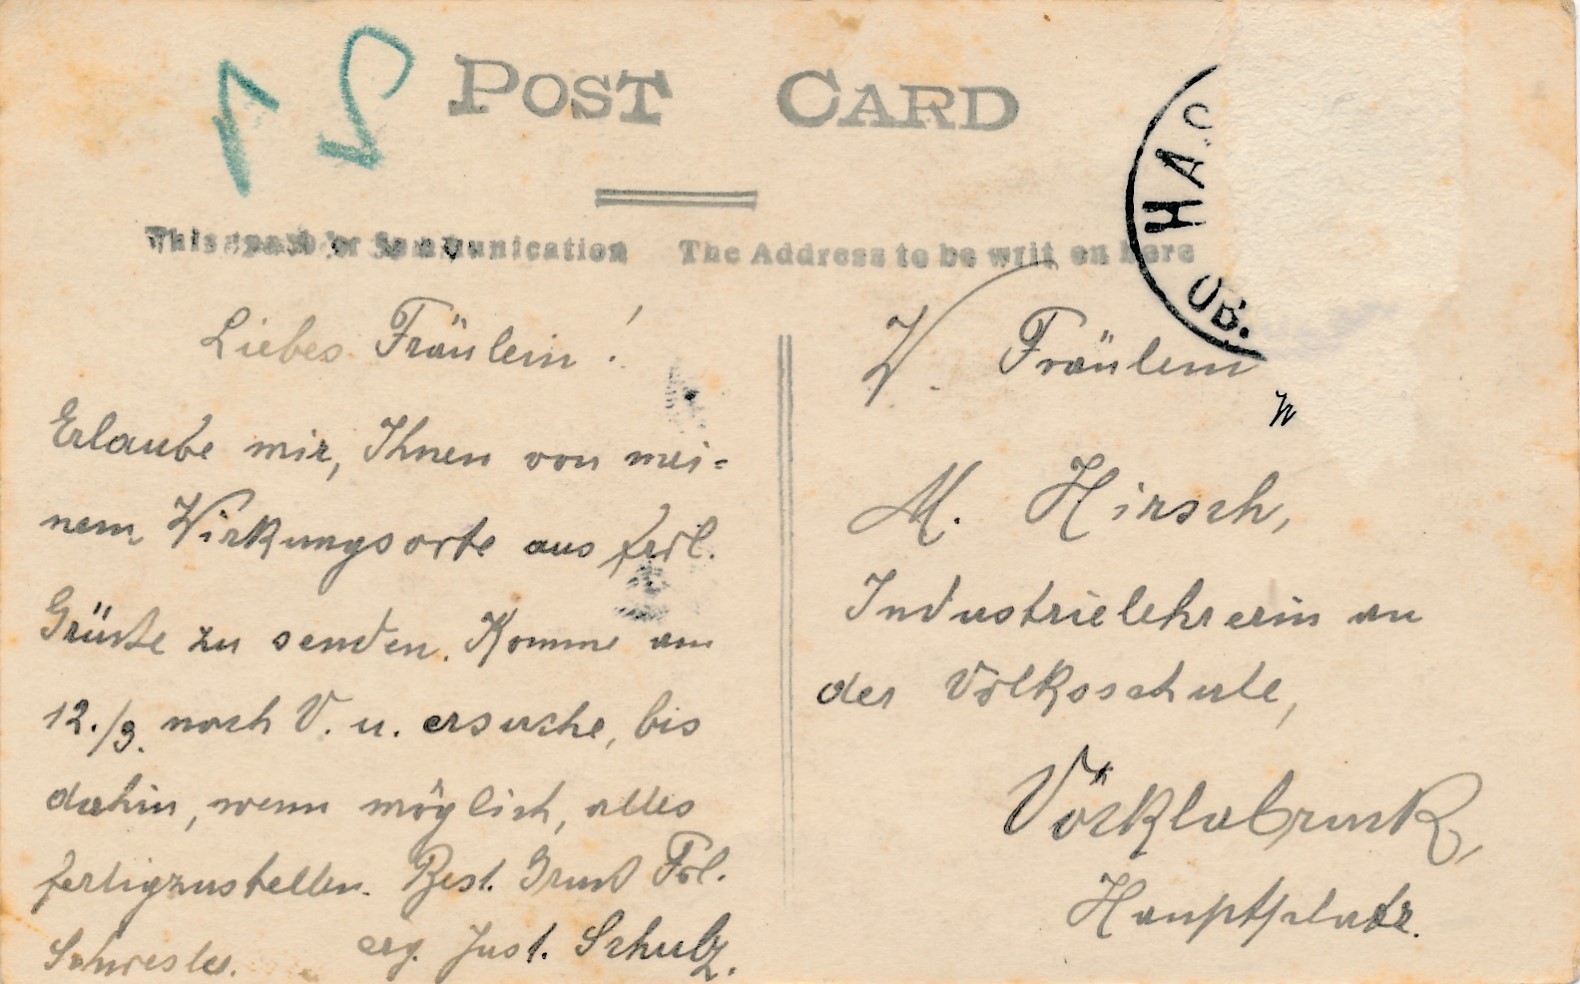 12
POST CARD
This space for Communication
The Address to be writt en here
HA
OB.
Liebes Fräulein!
Erlaube mir, Ihnen von mei=
nem Wirkungsorte aus frdl.
Grüsse zu senden. Komme am
12./9. nach V. u. ersuche, bis
dahin, wenn möglich, alles
fertigzustellen. Best. Gruß Frl.
Schwester. erg. Just. Schulz.
W. Fräulein
M. Hirsch,
Industrielehrerin an
der Volksschule,
Vöcklabruck,
Hauptplatz.